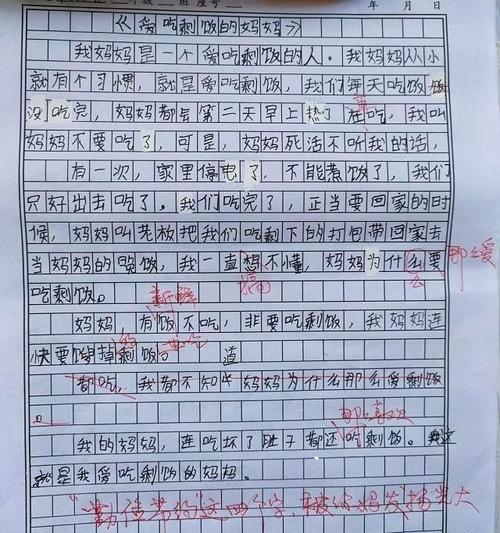 班 座号 年 月 日
《爱吃剩饭的妈妈》
我妈妈是一个爱吃剩饭的人。我妈妈从小
就有个习惯，就是爱吃剩饭，我们每天吃饭饭
没吃完，妈妈都会第二天早上热了在吃，我叫
再
妈妈不要吃了，可是，妈妈死活不听我的话，
有一次，家里停电了，不能煮饭了，我们
只好出去吃了。我们吃完了，正当要回家的时
候，妈妈叫老板把我们吃剩下的打包带回家去
当妈妈的晚饭，我一直想不懂，妈妈为什么要
搞
那么爱
吃剩饭。
新鲜
妈妈，有饭不吃，非要吃剩饭，我妈妈连
快要馊掉剩饭。 道
的
也吃
都吃，我都不知 妈妈为什么那么爱剩饭
。
那么喜欢
我的妈妈，连吃坏了肚子都还吃剩饭。
就是我爱吃剩饭的妈妈。
"勤俭节约"这四个字，被你妈发扬光大